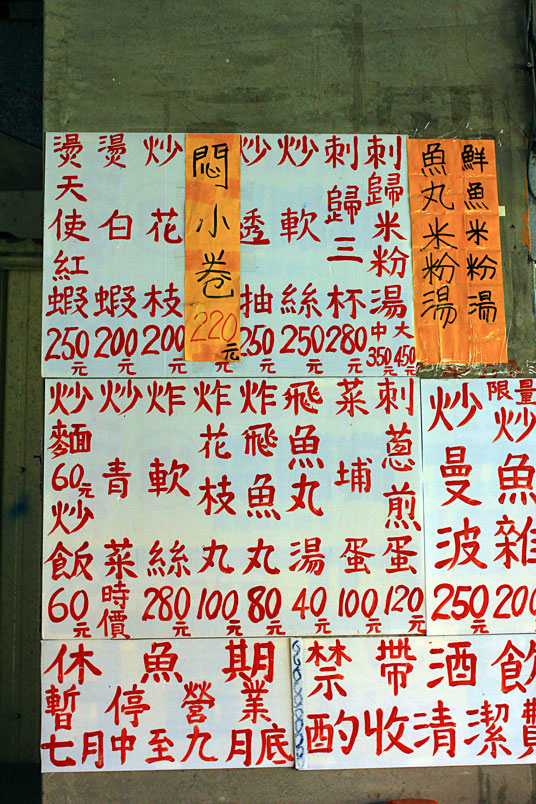 鮮魚米粉湯
魚丸米粉湯
刺歸米粉湯 中350元 大450元
刺歸三杯280元
炒軟絲250元
炒透抽250元
悶小卷220元
炒花枝200元
燙白蝦200元
燙天使紅蝦250元
限量炒魚雜200
炒曼波250元
刺蔥煎蛋120元
菜埔蛋100元
飛魚丸湯40元
炸飛魚丸80元
炸花枝丸100元
炸軟絲280元
炒青菜時價
炒麵60元
炒飯60元
休魚期
暫停營業
七月中至九月底
禁帶酒飲
酌收清潔費